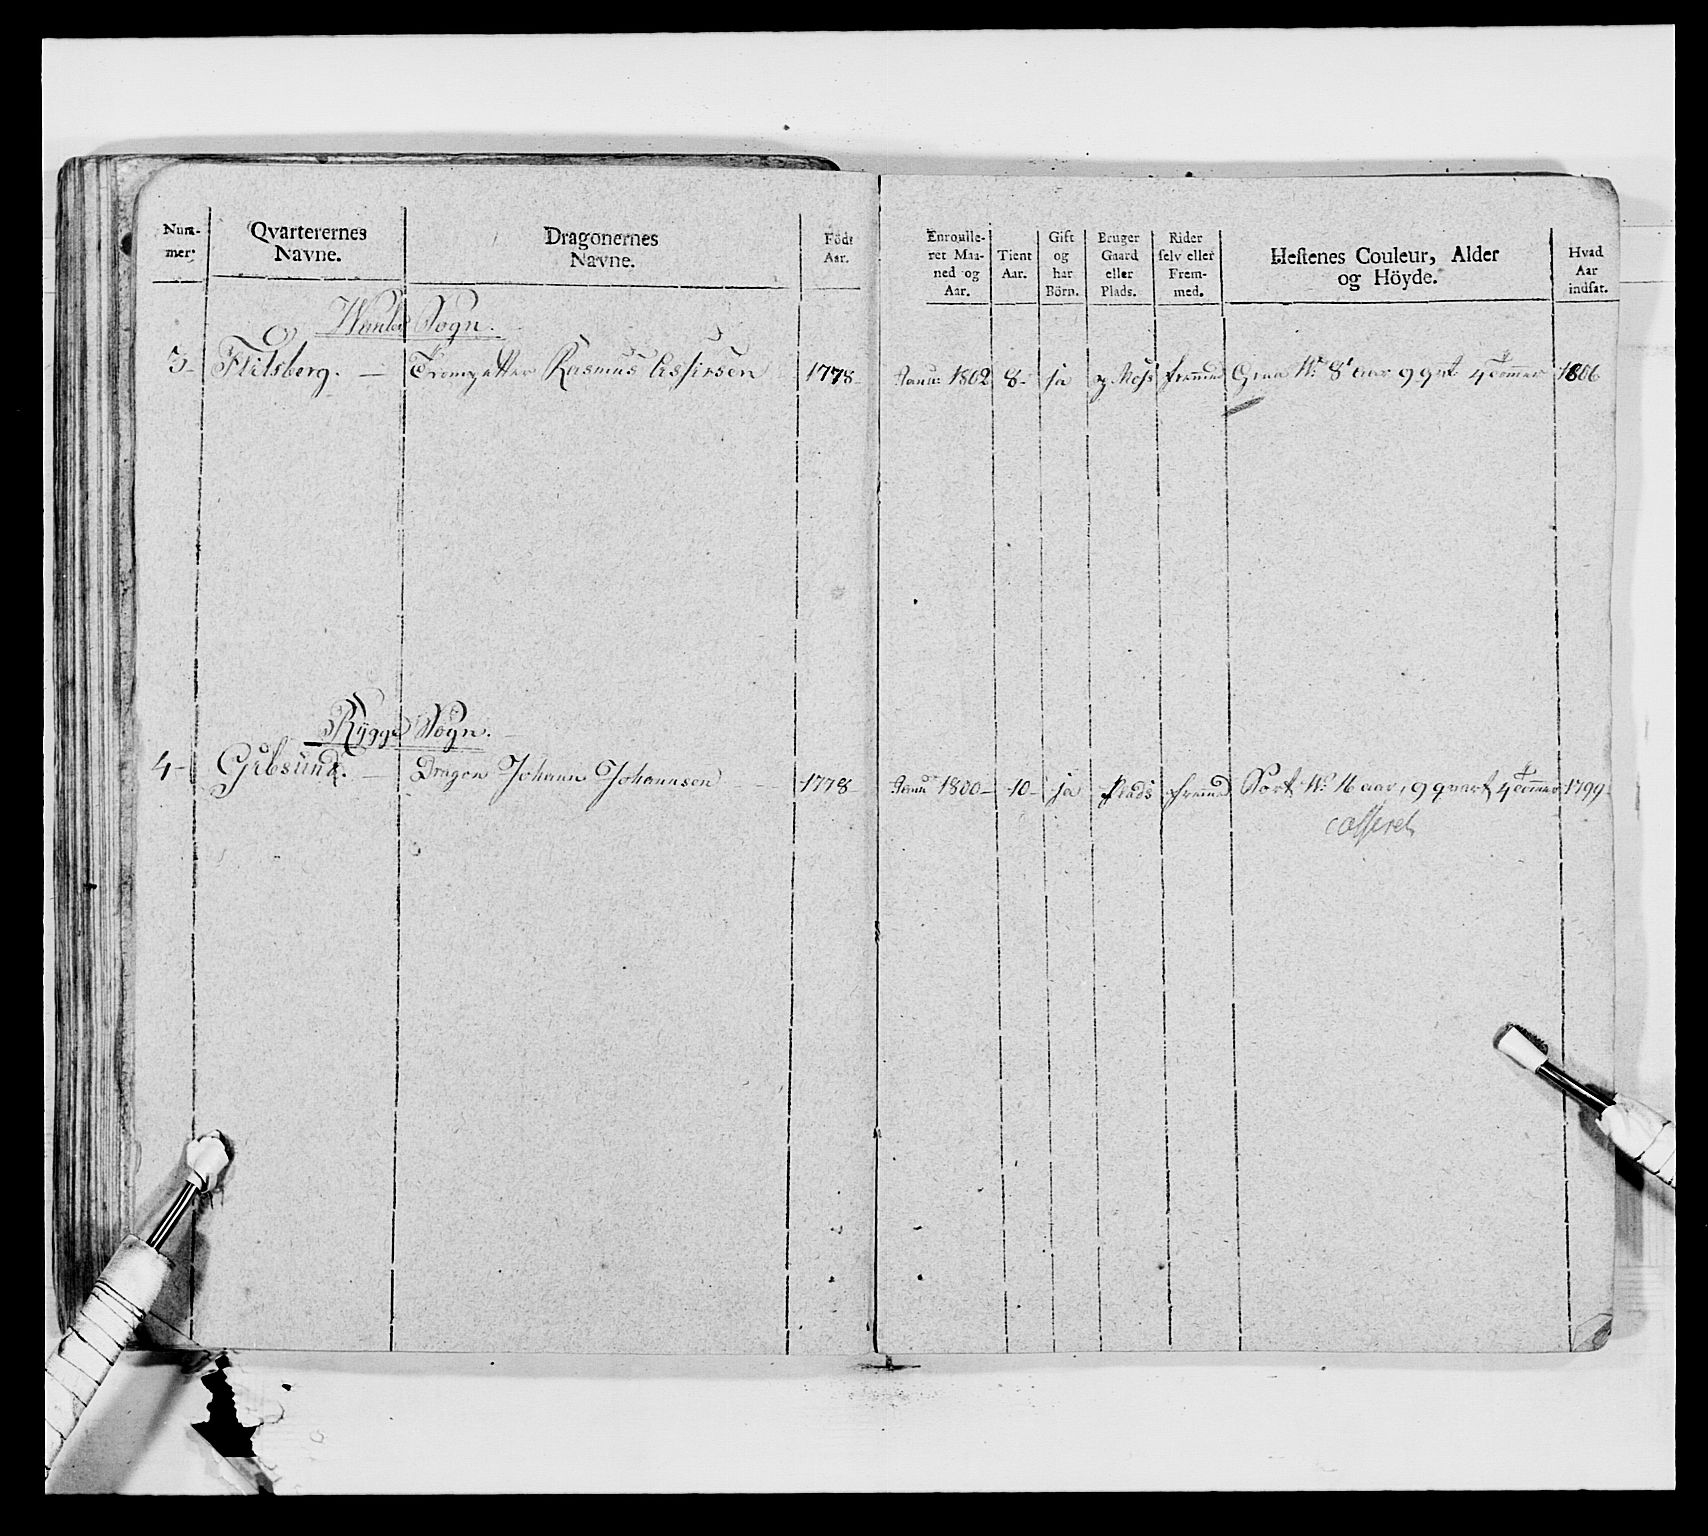 Num-
mer.
Qvarterernes
Navne.
Dragonernes
Navne.
Födt
Aar.
Enroulle-
ret Maa-
ned og
Aar.
Tient
Aar.
Gift
og
har
Börn.
Bruger
Gaard
eller
Plads.
Rider
selv eller
Frem-
med.
Hestenes Couleur, Alder
og Höyde.
Hvad
Aar
indsat.
Sogn.
3- Flilsberg. — Rasmus 1778- 1802 8- ja fremmed 8 aar 9 qvt 4 Tommer 1806
Rygge Sogn.
4- Gibsund. — Dragon Johann Johannsen 1778- 1800- 10- ja Plads fremmed Sort 16 aar, 9 qvart 4 Tommer 1799
casseret